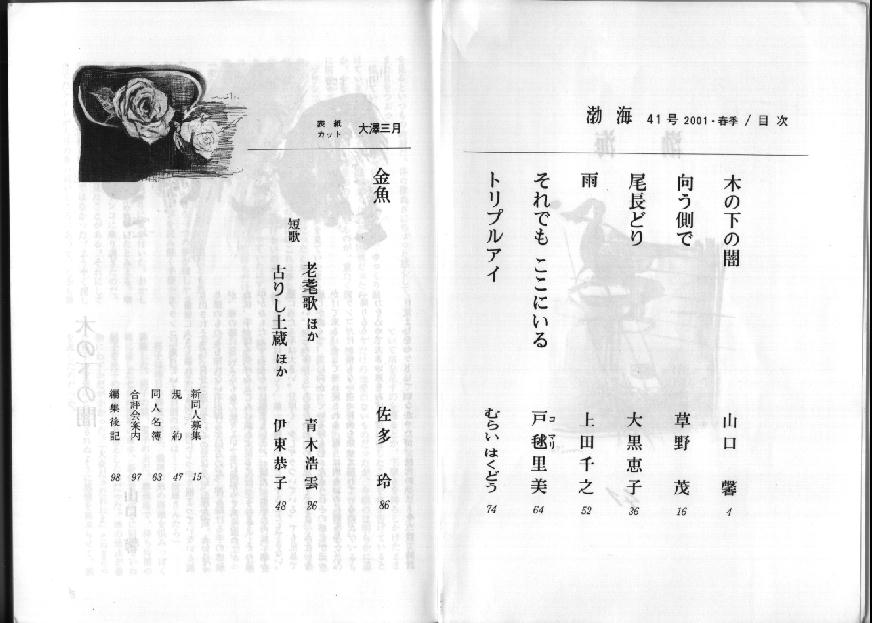 渤海 41号 2001・春季 / 目次
木の下の闇 山口 馨 4
向う側で 草野 茂 16
尾長どり 大黒恵子 36
雨 上田千之 52
それでも ここにいる 戸毬里美 64
コ マリ
トリプルアイ むらいはくどう 74
表紙
カット 大澤三月
金魚 佐多 玲 86
短歌
老耄歌 ほか 青木浩雲 26
古りし土蔵 ほか 伊東恭子 48
新同人募集 15
規約 47
同人名簿 63
合評会案内 97
編集後記 98
木の下の闇
山口 馨
渤海